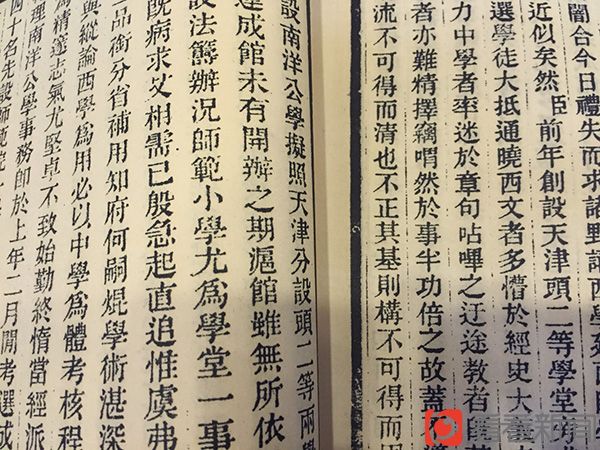 闇合今日禮失而求諸野謂西學
近似矣然臣前年創設天津頭二等學堂
選學徒大抵通曉西文者多懵於經史大
力中學者率迷於章句呫嗶之迂途教者
者亦難精擇竊喟然於事半功倍之故蓋不
流不可得而清也不正其基則構不可得而
設南洋公學擬照天津分設頭二等兩學
達成館未有開辦之期滬館雖無所依
設法籌辦況師範小學尤爲學堂一事
既病求艾相需已殷急起直追惟虞弗
品銜分省補用知府何嗣焜學術湛深
與縱論西學爲用必以中學爲體考核程
爲精邃志氣尤堅卓不致始勤終惰當經派
理南洋公學事務卽於上年二月開考選成
四十名先設師範院一
看看新闻